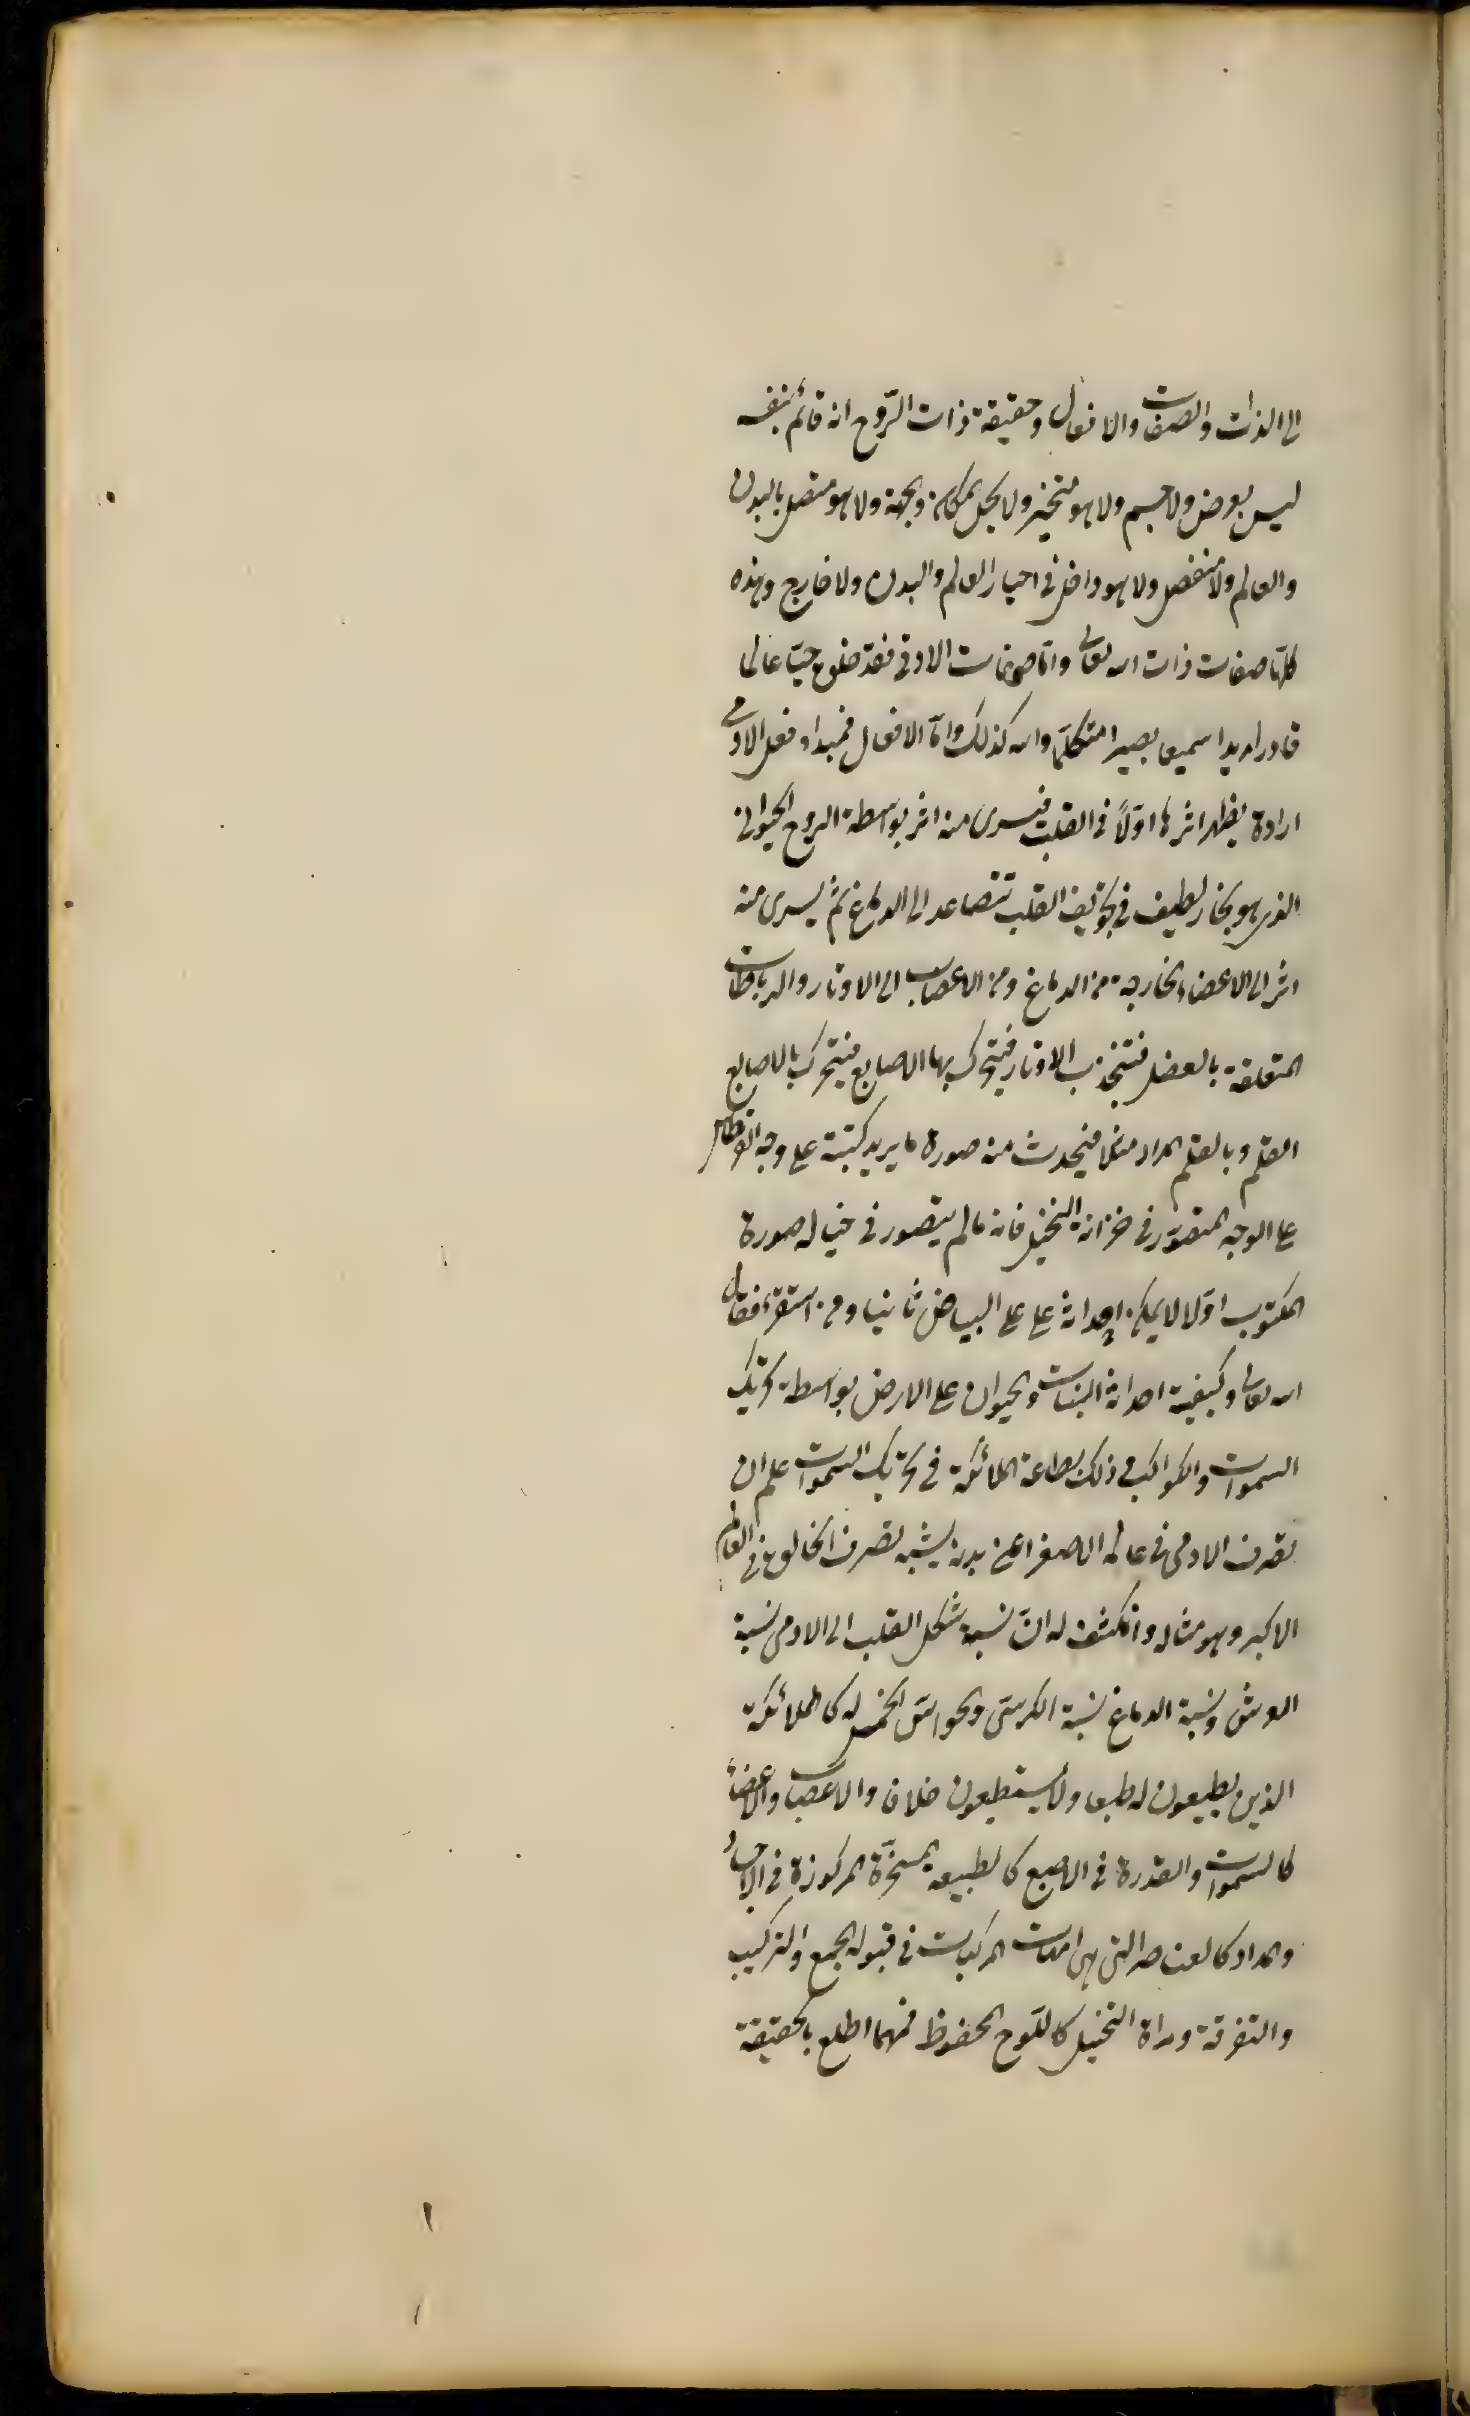 الى الذات والصفات والافعال وحقيقة ذات الرّوح انه قائم بنفسه
ليس بعرض ولا جسم ولا هو متحيز ولا يحل بمكان وبجهة ولا هو متصل بالبدن
والعالم ولا منفصل ولا هو داخل في اجسار العالم والبدن ولا خارج وهذه
كلها صفات ذات الله تعالى وامّا صفات الادمى فقد خلق حيّا عالما
قادرا مريدا سميعا بصيرا متكلّما والله كذلك وامّا الافعال فمبداء فعل الادمى
ارادة يظهر اثرها اوّلاً في القلب فيسرى منه اثر بواسطة الروح الحيوانى
الذى هو بخار لطيف في تجويف القلب تتصاعد الى الدماغ ثم يسرى منه
اثر الى الاعضاء الخارجة من الدماغ ومن الاعصاب الى الاوتار والرباطات
المتعلقة بالعضل فتنجذب الاوتار فيتحرك بها الاصابع فيتحرك بالاصابع
القلم وبالقلم المداد مثلا فيحدث منه صورة ما يريد كتبته على وجه القرطاس
على الوجه المتصوّر في خزانة التخيل فانه ما لم يتصور في خياله صورة
المكتوب اوّلا لا يمكن احداثه على على البياض ثانيا ومن استقرء افعال
الله تعالى وكيفية احداثه النبات والحيوان على الارض بواسطة تحريك
السموات والكواكب وذلك بطاعة الملائكة في تحريك السموات علم ان
تصرف الادمى في عالمه الاصغر اعنى بدنه يشبه تصرف الخالق في العالم
الاكبر وهو مثاله وانكشف له انّ نسبة شكل القلب الى الادمى نسبة
العرش ونسبة الدماغ نسبة الكرسى والحواسّ الخمس له كالملائكة
الذين يطيعون له طبعا ولا يستطيعون خلافا والاعصاب والاعضاء
كالسموات والقدرة في الاصبع كالطبيعة المسخّرة المركوزة في الاجساد
والمداد كالعناصر التى هى امهات المركبات في قبوله الجمع والتركيب
والتفرقة ومراة التخيل كاللوح المحفوظ فمهما اطلع بالحقيقة